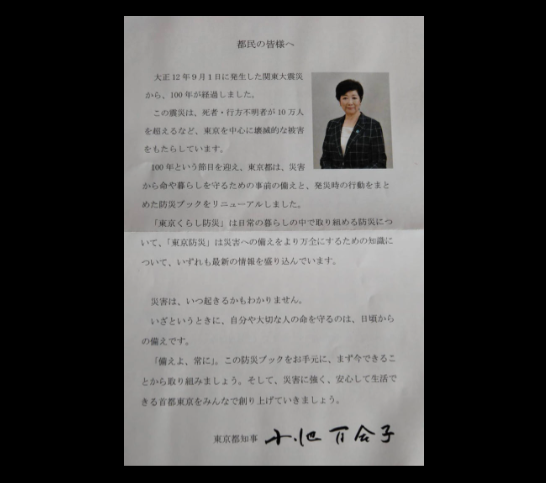 都民の皆様へ
大正12年9月1日に発生した関東大震災
から、100年が経過しました。
この震災は、死者・行方不明者が10万人
を超えるなど、東京を中心に壊滅的な被害
をもたらしています。
100年という節目を迎え、東京都は、災害
から命や暮らしを守るための事前の備えと、発災時の行動をまと
めた防災ブックをリニューアルしました。
「東京くらし防災」は日常の暮らしの中で取り組める防災につ
いて、「東京防災」は災害への備えをより万全にするための知識に
ついて、いずれも最新の情報を盛り込んでいます。
災害は、いつ起きるかもわかりません。
いざというときに、自分や大切な人の命を守るのは、日頃から
の備えです。
「備えよ、常に」。この防災ブックをお手元に、まず今できるこ
とから取り組みましょう。そして、災害に強く、安心して生活で
きる首都東京をみんなで創り上げていきましょう。
東京都知事 小池百合子